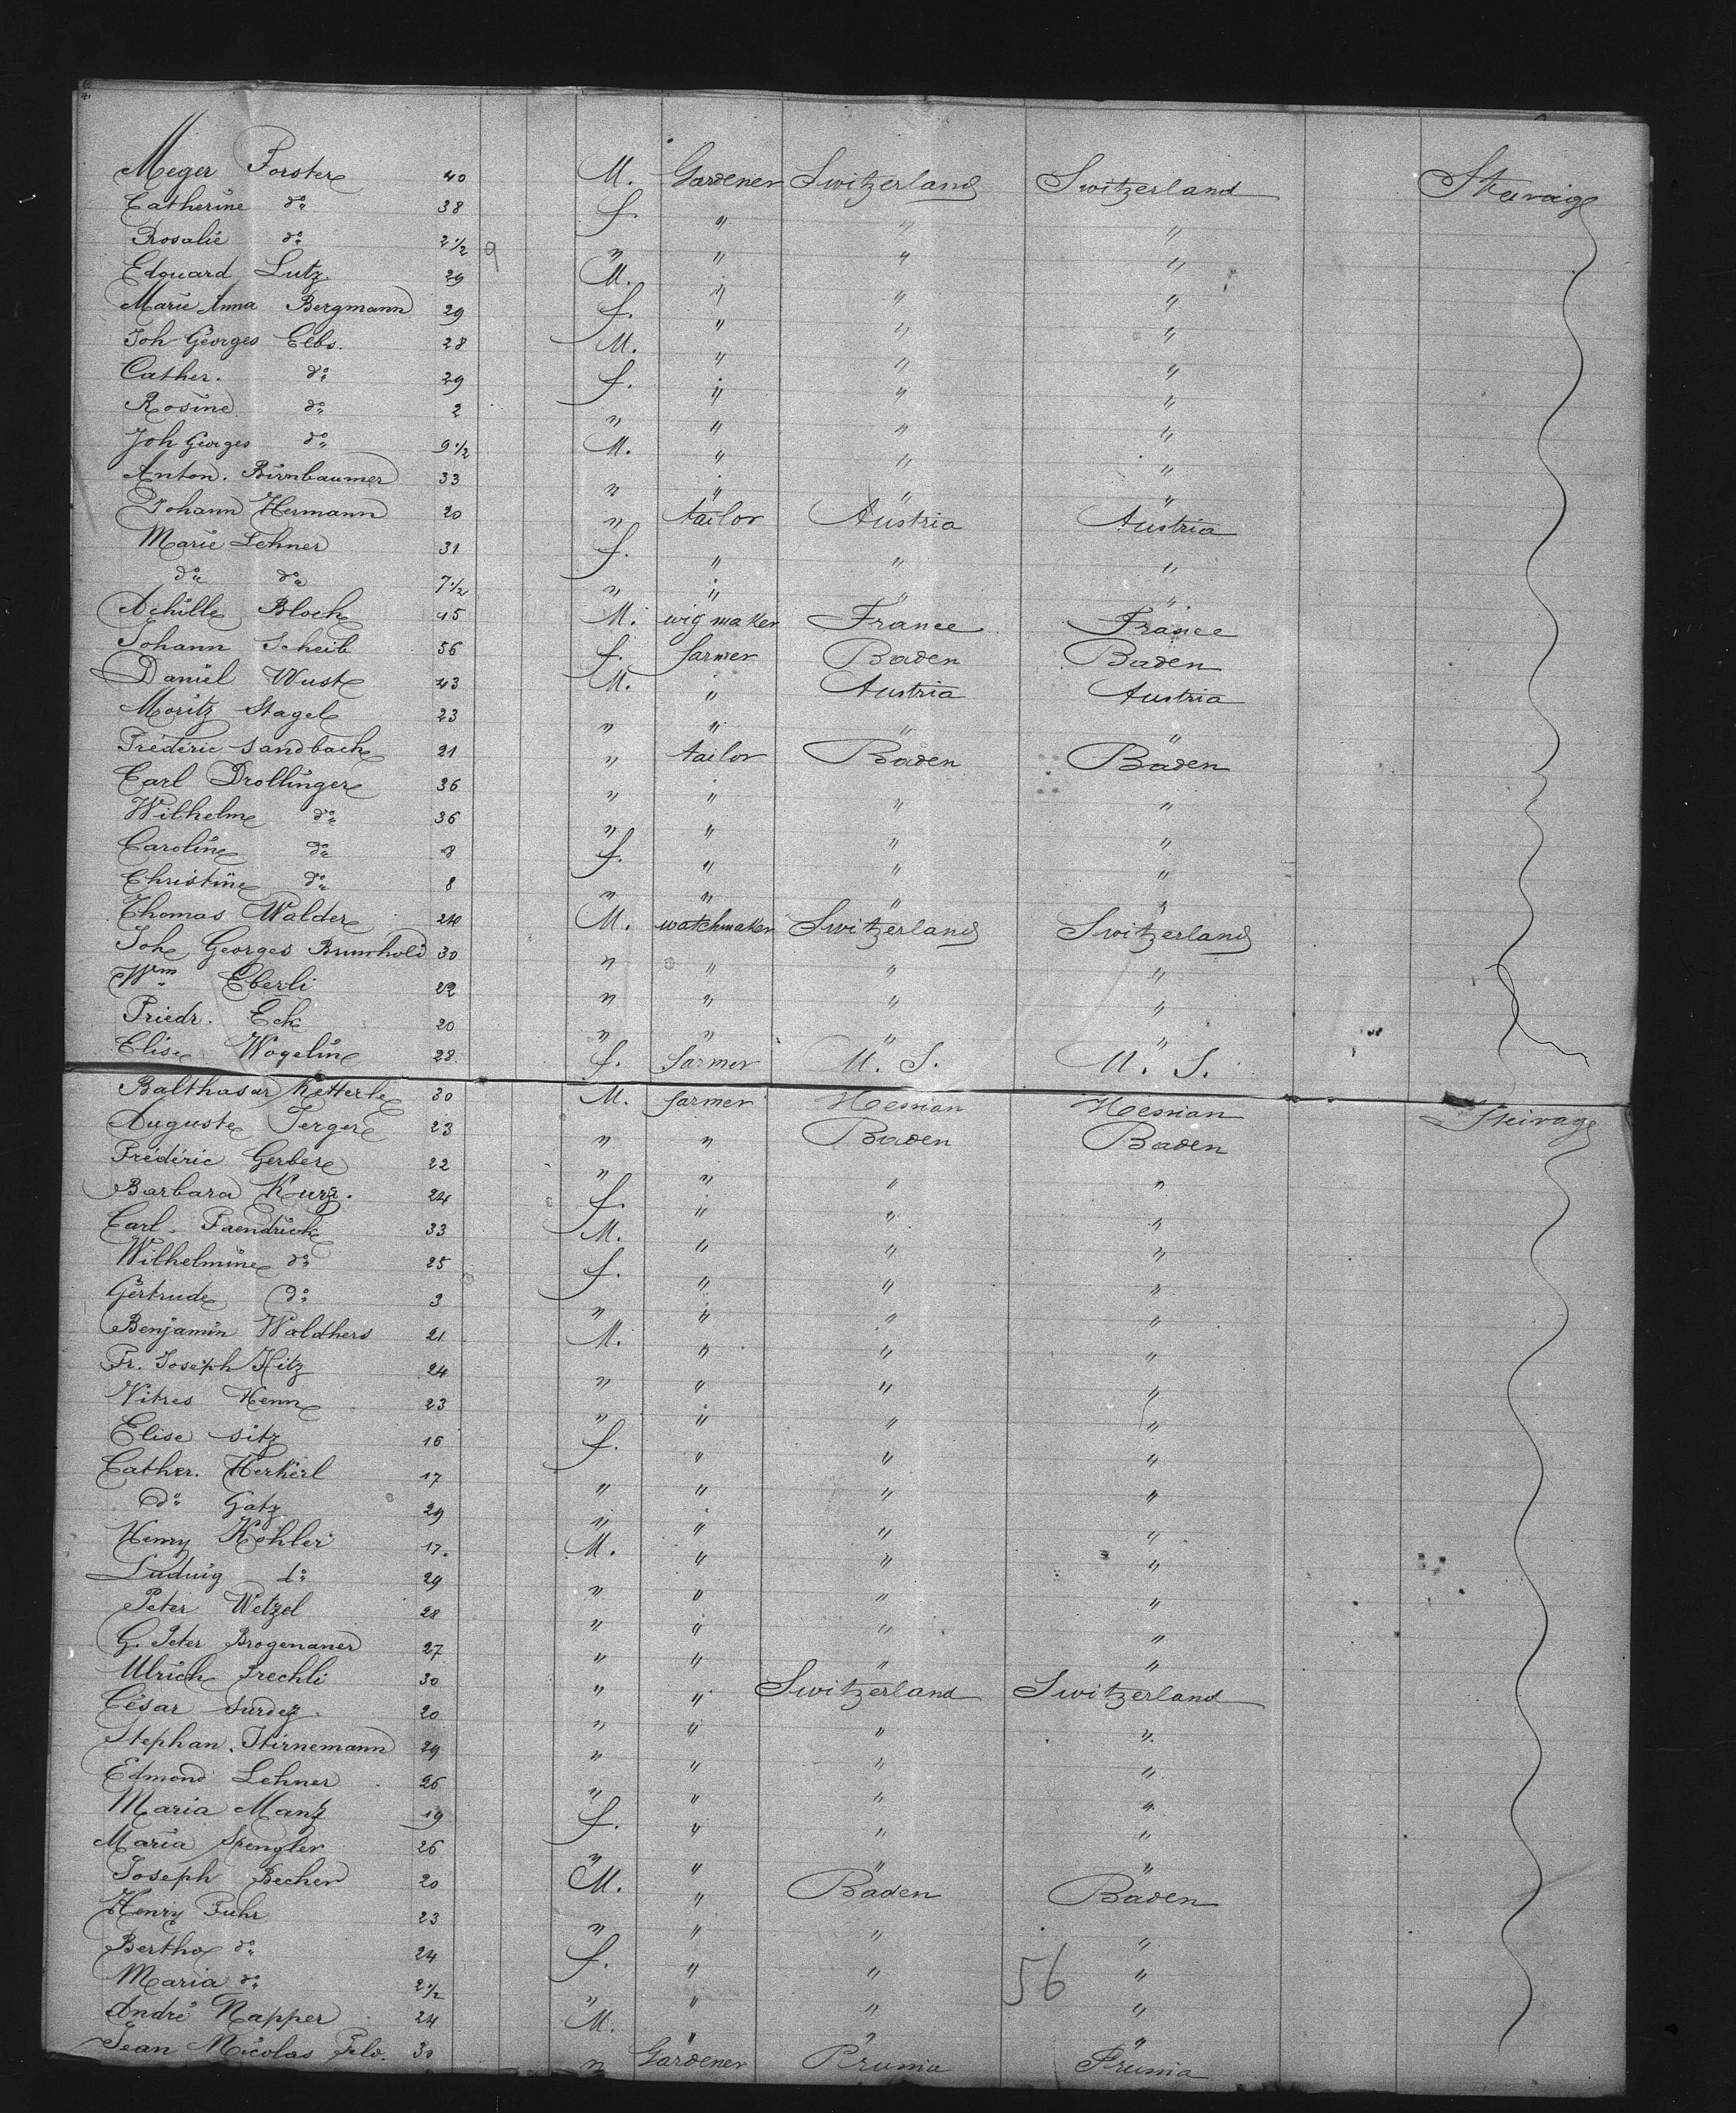 Meger Forster 40 M. Gardener Switzerland Switzerland Steerage
Catherine do 38 f. " " "
Rosalie do 2 1/2 " " " "
9
Edouard Lutz. 29 M. " " "
Marie Anna Bergmann 29 f. " " "
Joh Georges Elbs. 28 M. " " "
Cather. do 29 f. " " "
Rosine do 2 " " " "
Joh Georges do 9 1/2 M. " " "
Anton. Birnbaumer 33 " " " "
Johann Hermann 20 " tailor Austria Austria
Marie Lehner 31 f. " " "
do do 7 1/2 " " " "
Achille Bloch 45 M. wig maker France France
Johann Scheib 56 f. farmer Baden Baden
Daniel Wust 43 M. " Austria Austria
Moritz Stagel 23 " " " "
Fréderic Sandbach 21 " tailor Baden Baden
Carl Drollinger 36 " " " "
Wilhelm do 36 " " " "
Caroline do 8 f. " " "
Christine do 8 " " " "
Thomas Walder 24 M. watchmaker Switzerland Switzerland
Joh Georges Brunhold 30 " " " "
Wm Eberli 22 " " " "
Friedr. Eck 20 " " " "
Elise Wogelin 28 f. farmer U. S. U. S.
Balthasar Ketterle 30 M. farmer Hessian Hessian Steirage
Auguste Jerger 23 " " Baden Baden
Fréderic Gerber 22 " " " "
Barbara Kurz. 24 f. " " "
Carl. Faendrich 33 M. " " "
Wilhelmine do 25 f. " " "
Gertrude do 3 " " " "
Benjamin Waldhers 21 M. " " "
Fr. Joseph Hitz 24 " " " "
Henn 23 " " " "
Elise Sitz 16 f. " " "
Cather. Herkerl 17 " " " "
do Gatz 29 " " " "
Henry Kohler 17. M. " " "
Ludwig do 29 " " " "
Peter Wetzel 28 " " " "
G. Peter Brogenaner 27 " " " "
Ulrich Frechli 30 " " Switzerland Switzerland
César Surdez. 20 " " " "
Stephan. Stirnemann 29 " " " "
Edmond Lehner 26 " " " "
Maria Manz 19 f. " " "
Maria Spengler 26 " " " "
Joseph Becher 20 M. " Baden Baden
Henry Fuhr 23 " " " "
Bertha do 24 f. " " "
56
Maria do 2 1/2 " " " "
André Napper 24 M. " " "
Jean Nicolas 30 " Gardener Prussia Prussia